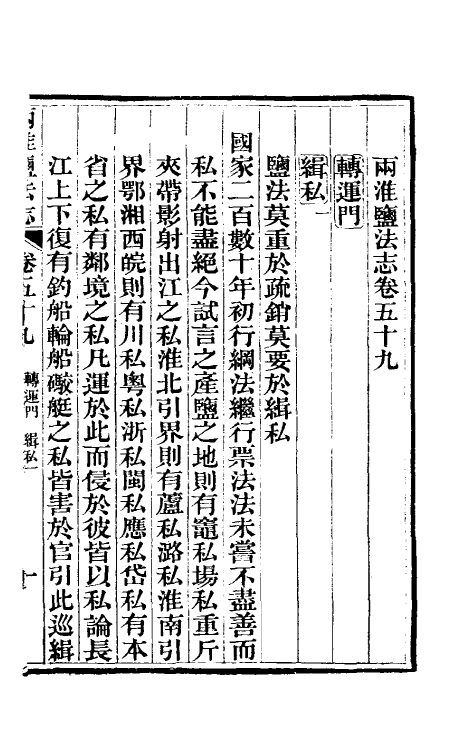 兩淮鹽法志卷五十九
轉運門
緝私一
鹽法莫重於疏銷莫要於緝私
國家二百數十年初行綱法繼行票法法未嘗不盡善而
私不能盡絕今試言之產鹽之地則有竈私場私重斤
夾帶影射出江之私淮北引界則有蘆私潞私淮南引
界鄂湘西皖則有川私粵私浙私閩私應私岱私有本
省之私有鄰境之私凡運於此而侵於彼皆以私論長
江上下復有釣船輪船礮艇之私皆害於官引此巡緝
兩淮鹽法志 卷五十九 轉運門 緝私一 一